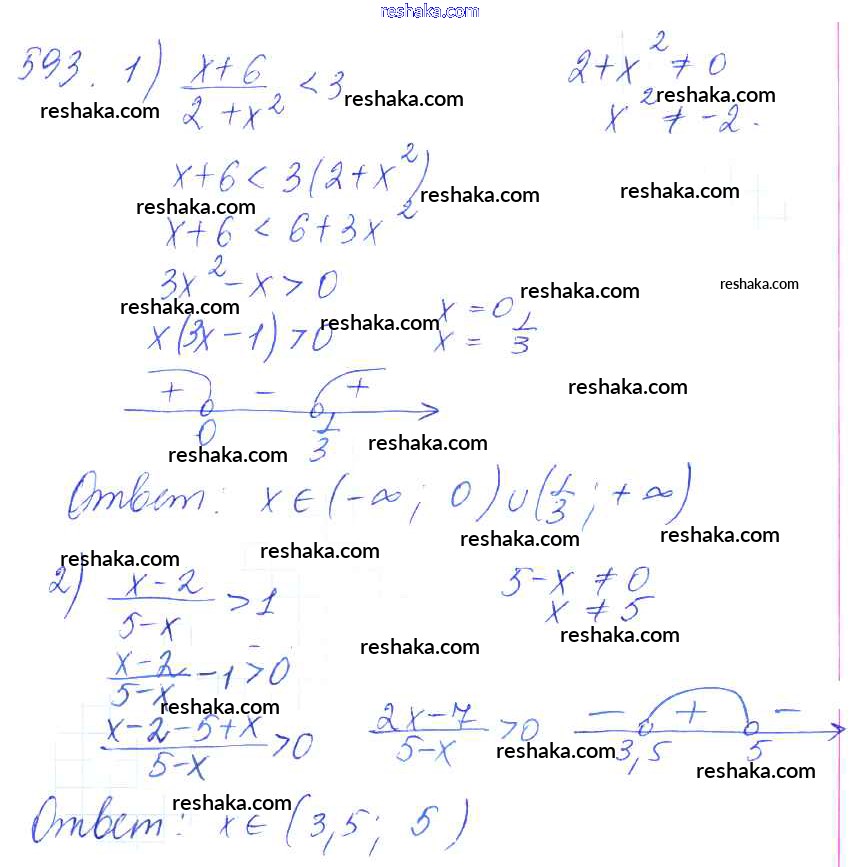 reshaka.com
593. 1) (x+6)/(2+x²) < 3    2+x² ≠ 0
reshaka.com reshaka.com reshaka.com
x² ≠ -2.
x+6 < 3(2+x²)
reshaka.com reshaka.com reshaka.com
x+6 < 6+3x²
3x²-x>0
reshaka.com reshaka.com reshaka.com reshaka.com
x(3x-1)>0    x = 0
x = 1/3
+ - +
reshaka.com
0 1/3
reshaka.com reshaka.com
Ответ: x∈(-∞; 0)∪(1/3; +∞)
reshaka.com reshaka.com reshaka.com reshaka.com
2) (x-2)/(5-x) > 1    5-x ≠ 0
x ≠ 5
reshaka.com
(x-2)/(5-x) - 1 > 0
reshaka.com
reshaka.com
(x-2-5+x)/(5-x) > 0    (2x-7)/(5-x) > 0    - + -
3,5 5
reshaka.com reshaka.com
reshaka.com
Ответ: x∈(3,5; 5)